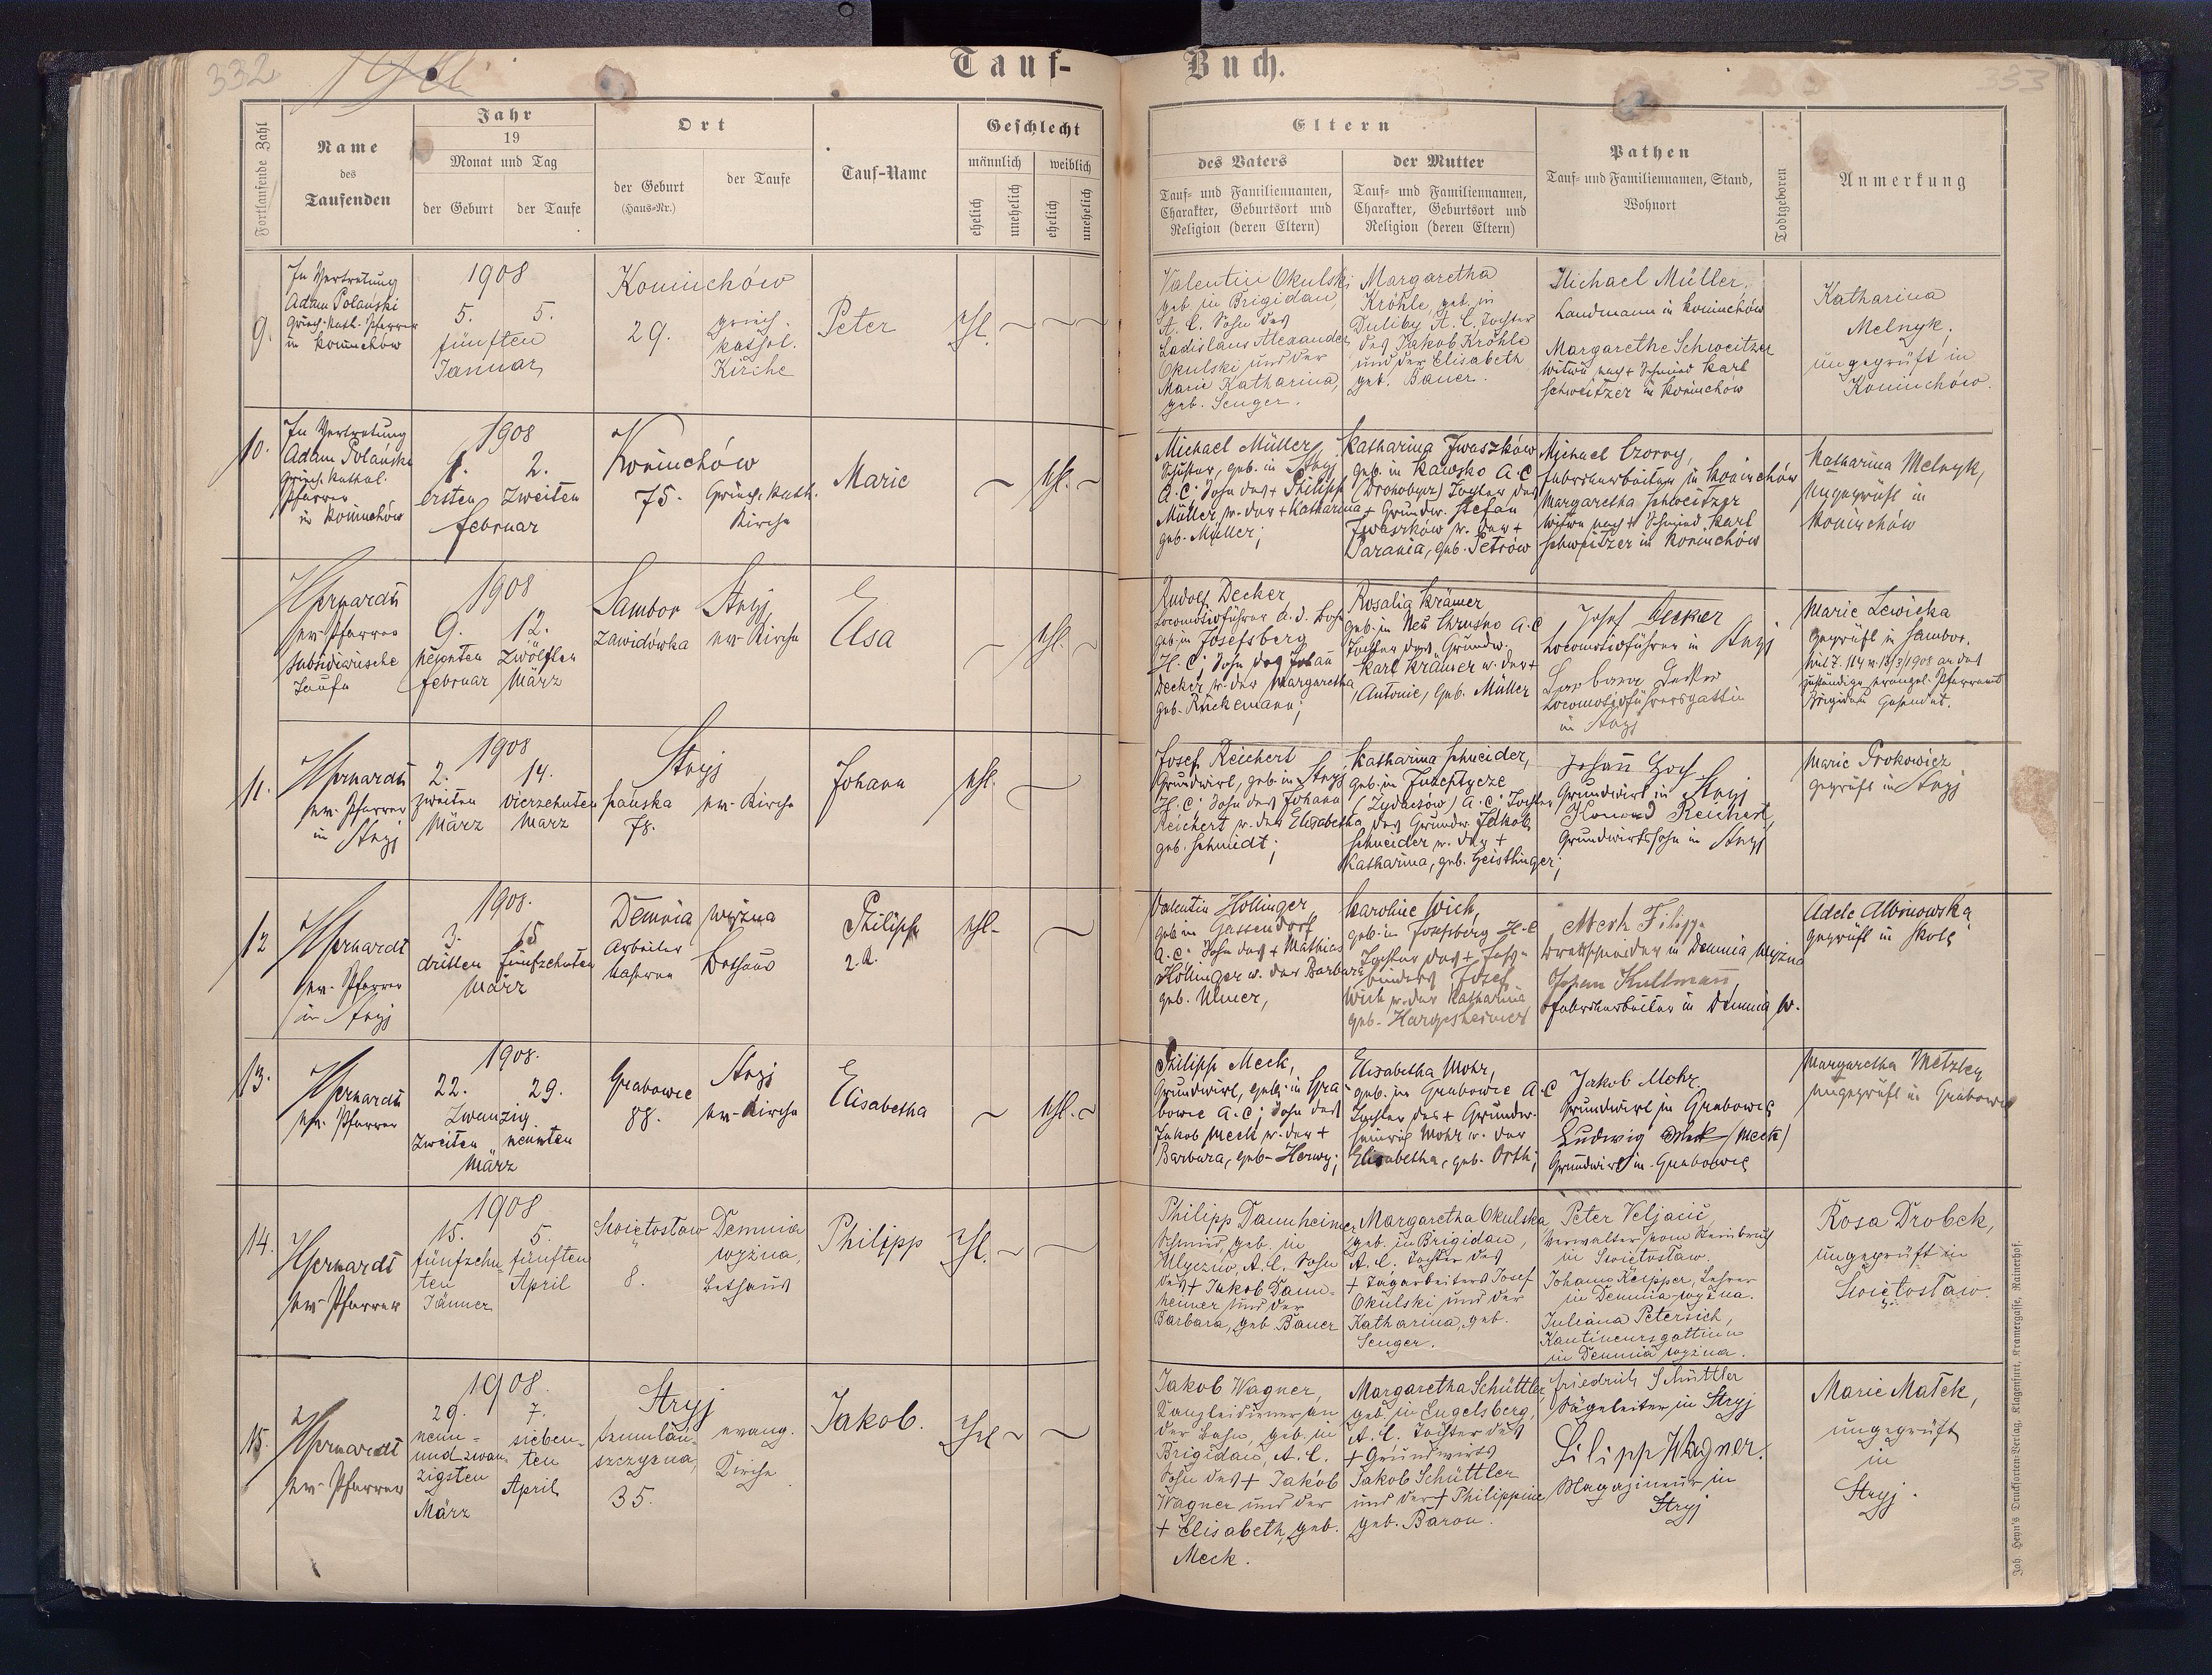 332
Tauf-Buch.
333
Fortlaufende Zahl
Name
des
Taufenden
Jahr
19
Monat und Tag
der Geburt
der Taufe
Ort
der Geburt
(Haus-Nr.)
der Taufe
Tauf-Name
Geschlecht
männlich
weiblich
ehelich
unehelich
ehelich
unehelich
Eltern
des Vaters
Tauf- und Familiennamen,
Charakter, Geburtsort und
Religion (deren Eltern)
der Mutter
Tauf- und Familiennamen,
Charakter, Geburtsort und
Religion (deren Eltern)
Pathen
Tauf- und Familiennamen, Stand,
Wohnort
Todtgeboren
Anmerkung
9.
In Vertretung
Adam Polański
griech.-kath. Pfarrer
in Koniuchów
1908
5. 5.
fünften
Januar
Koniuchów
29.
griech.
kathol.
Kirche
Peter
ehl.
Valentin Okulski
geb in Brigidau,
A. C. Sohn des
Ladislaus Alexander
Okulski und der
Marie Katharina,
geb. Senger.
Margaretha
Kröhle, geb. in
Duliby A. C. Tochter
des Jakob Kröhle
und der Elisabeth
geb. Bauer.
Michael Müller,
Landmann in Koniuchów
Margarethe Schweitzer
Witwe nach + Schmied Karl
Schweitzer in Koniuchów
Katharina
Melnyk,
ungeprüft in
Koniuchów.
10.
In Vertretung
Adam Polański
griech. kathol.
Pfarrer
in Koniuchów
1908
1. 2.
ersten zweiten
Februar
Koniuchów
75.
Griech. kath.
Kirche
Marie
ehl.
Michael Müller,
Schuster, geb. in Stryj
A. C. Sohn des + Philipp
Müller u. der + Katharina
geb. Müller;
Katharina Iwaszków
geb. in Kawsko A C
(Drohobycz) Tochter des
+ Grundw. Stefan
Iwaszków u. der +
Parania, geb. Petrów
Michael Czorny,
Fabriksarbeiter in Koniuchów
Margaretha Schweitzer
Witwe nach + Schmied Karl
Schweitzer in Koniuchów
Katharina Melnyk,
ungeprüft in
Koniuchów
ev. Pfarrer
subsidiarische
Taufe
1908
9. 12.
neunten zwölften
Februar März
Sambor
Zawidówka
Stryj,
ev. Kirche
Elsa
ehl.
Rudolf Decker,
Locomotivführer d. d. Bahn
geb. in Josefsberg
H. C. Sohn des Johann
Decker u. der Margaretha
geb. Rückemann;
Rosalia Krämer,
geb. in Neu Chrusno A. C
Tochter des Grundw.
Karl Krämer u. der +
Antonie, geb. Müller
Josef Decker
Locomotivführer in Stryj
Barbara Decker
Locomotivführersgattin
in Stryj
Marie Lewicka
geprüft in Sambor.
mit Z. 114 v. 18/3/1908 an das
zuständige evangel. Pfarramt
Brigidau gesendet.
11.
ev. Pfarrer
in Stryj
1908
2. 14.
zweiten vierzehnten
März März
Stryj
pańska
78.
ev. Kirche
Johann
ehl.
Josef Reichert
Grundwirt, geb. in Stryj
H. C. Sohn des Johann
Reichert u. der Elisabetha
geb. Schmidt;
Katharina Schneider,
geb. in
(Żydaczów) A. C. Tochter
des Grundw. Jakob
Schneider u. der +
Katharina, geb. Geistlinger;
Johann Hoch
Grundwirt in Stryj
Konrad Reichert,
Grundwirtssohn in Stryj
Marie Prokowicz
geprüft in Stryj
12
ev. Pfarrer
in Stryj
1908.
3. 15
dritten fünfzehnten
März
Demnia wyżna
Arbeiter
Kasernen
Bethaus
Philipp
ehl.
Valentin Hollinger
geb. in Gassendorf
A. C. Sohn des + Mathias
Hollinger u. der Barbara
geb. Ulmer,
Karoline Wich,
geb. in Josefsberg H. C
Tochter des + Fass-
binders Josef
Wich u. der Katharina,
geb. Hargesheimer
Mech Filipp
Brettschneider in Demnia wyżna
Johann Kullmann
Fabriksarbeiter in Demnia w.
Adele Albinowska
geprüft in Skole
13.
ev. Pfarrer
1908.
22. 29.
zwanzig
zweiten neunten
März
Grabowie
88.
Stryj
ev. Kirche
Elisabetha
ehl.
Philipp Meck,
Grundwirt, geb. in Gra-
bowie A. C; Sohn des
Jakob Meck u. der +
Barbara, geb. Herwy;
Elisabetha Mohr,
geb. in Grabowie A C
Tochter des + Grundw.
Heinrich Mohr u. der
Elisabetha, geb. Orth;
Jakob Mohr
Grundwirt in Grabowie
Ludwig Mek (Meck)
Grundwirt in Grabowie
Margaretha Metzler
ungeprüft in Grabowie
14.
ev. Pfarrer
1908
15. 5.
fünfzehn- fünften
ten April
Jänner
Swiętosław
8.
Demnia
wyżna,
Bethaus
Philipp
ehl.
Philipp Dannheimer
Schmied, geb. in
Ulyczno, A. C. Sohn
des + Jakob Dann-
heimer und der
Barbara, geb Bauer
Margaretha Okulska
geb. in Brigidau,
A. C. Tochter des
+ Tagarbeiters Josef
Okulski und der
Katharina, geb.
Senger.
Peter Veljacić,
Verwalter vom Steinbruch
in Swiętosław.
Johann Keipper, Lehrer
in Demnia wyżna.
Juliana Petersich,
Kantineursgattin
in Demnia wyżna.
Rosa Drobek,
ungeprüft in
Swiętosław.
15.
ev. Pfarrer
1908.
29. 7.
neun- sieben-
und zwan- ten
zigsten April
März
Stryj
35.
evang.
Kirche
Jakob.
ehl
Jakob Wagner,
Kanzleidiener an
der Bahn, geb. in
Brigidau, A. C.
Sohn des + Jakob
Wagner und der
+ Elisabeth, geb.
Meck.
Margaretha Schüttler
geb. in Engelsberg,
A. C. Tochter des
+ Grundwirts
Jakob Schüttler
und der + Philippine
geb. Baron.
Friedrich Schüttler
Sägeleiter in Stryj
Filipp Wagner.
Magazineur in
Stryj
Marie Małek,
ungeprüft
in
Stryj.
Joh. Heyn's Drucksorten-Verlag, Klagenfurt, Kramergasse, Rainerhof.